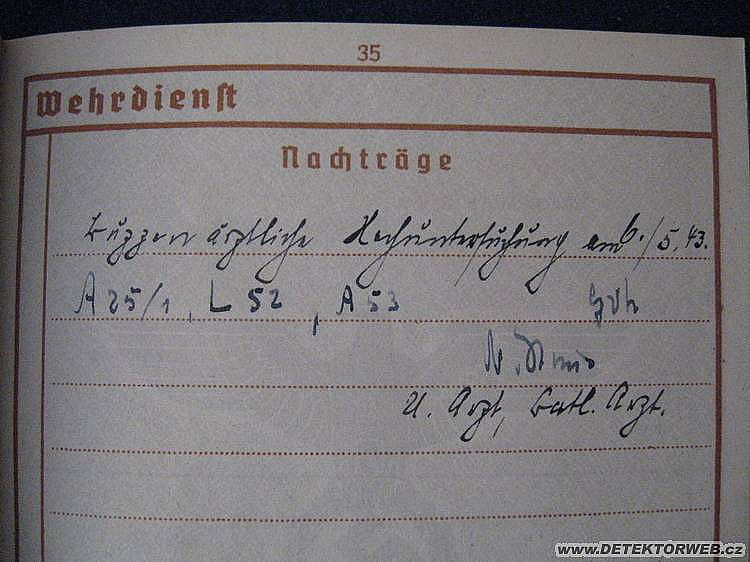 35
Wehrdienst
Nachträge
Truppenärztliche Nachuntersuchung am 6./5.43.
A 25/1, L 52, A 53 gvh
U. Arzt, Batl. Arzt.
www.DETEKTORWEB.cz